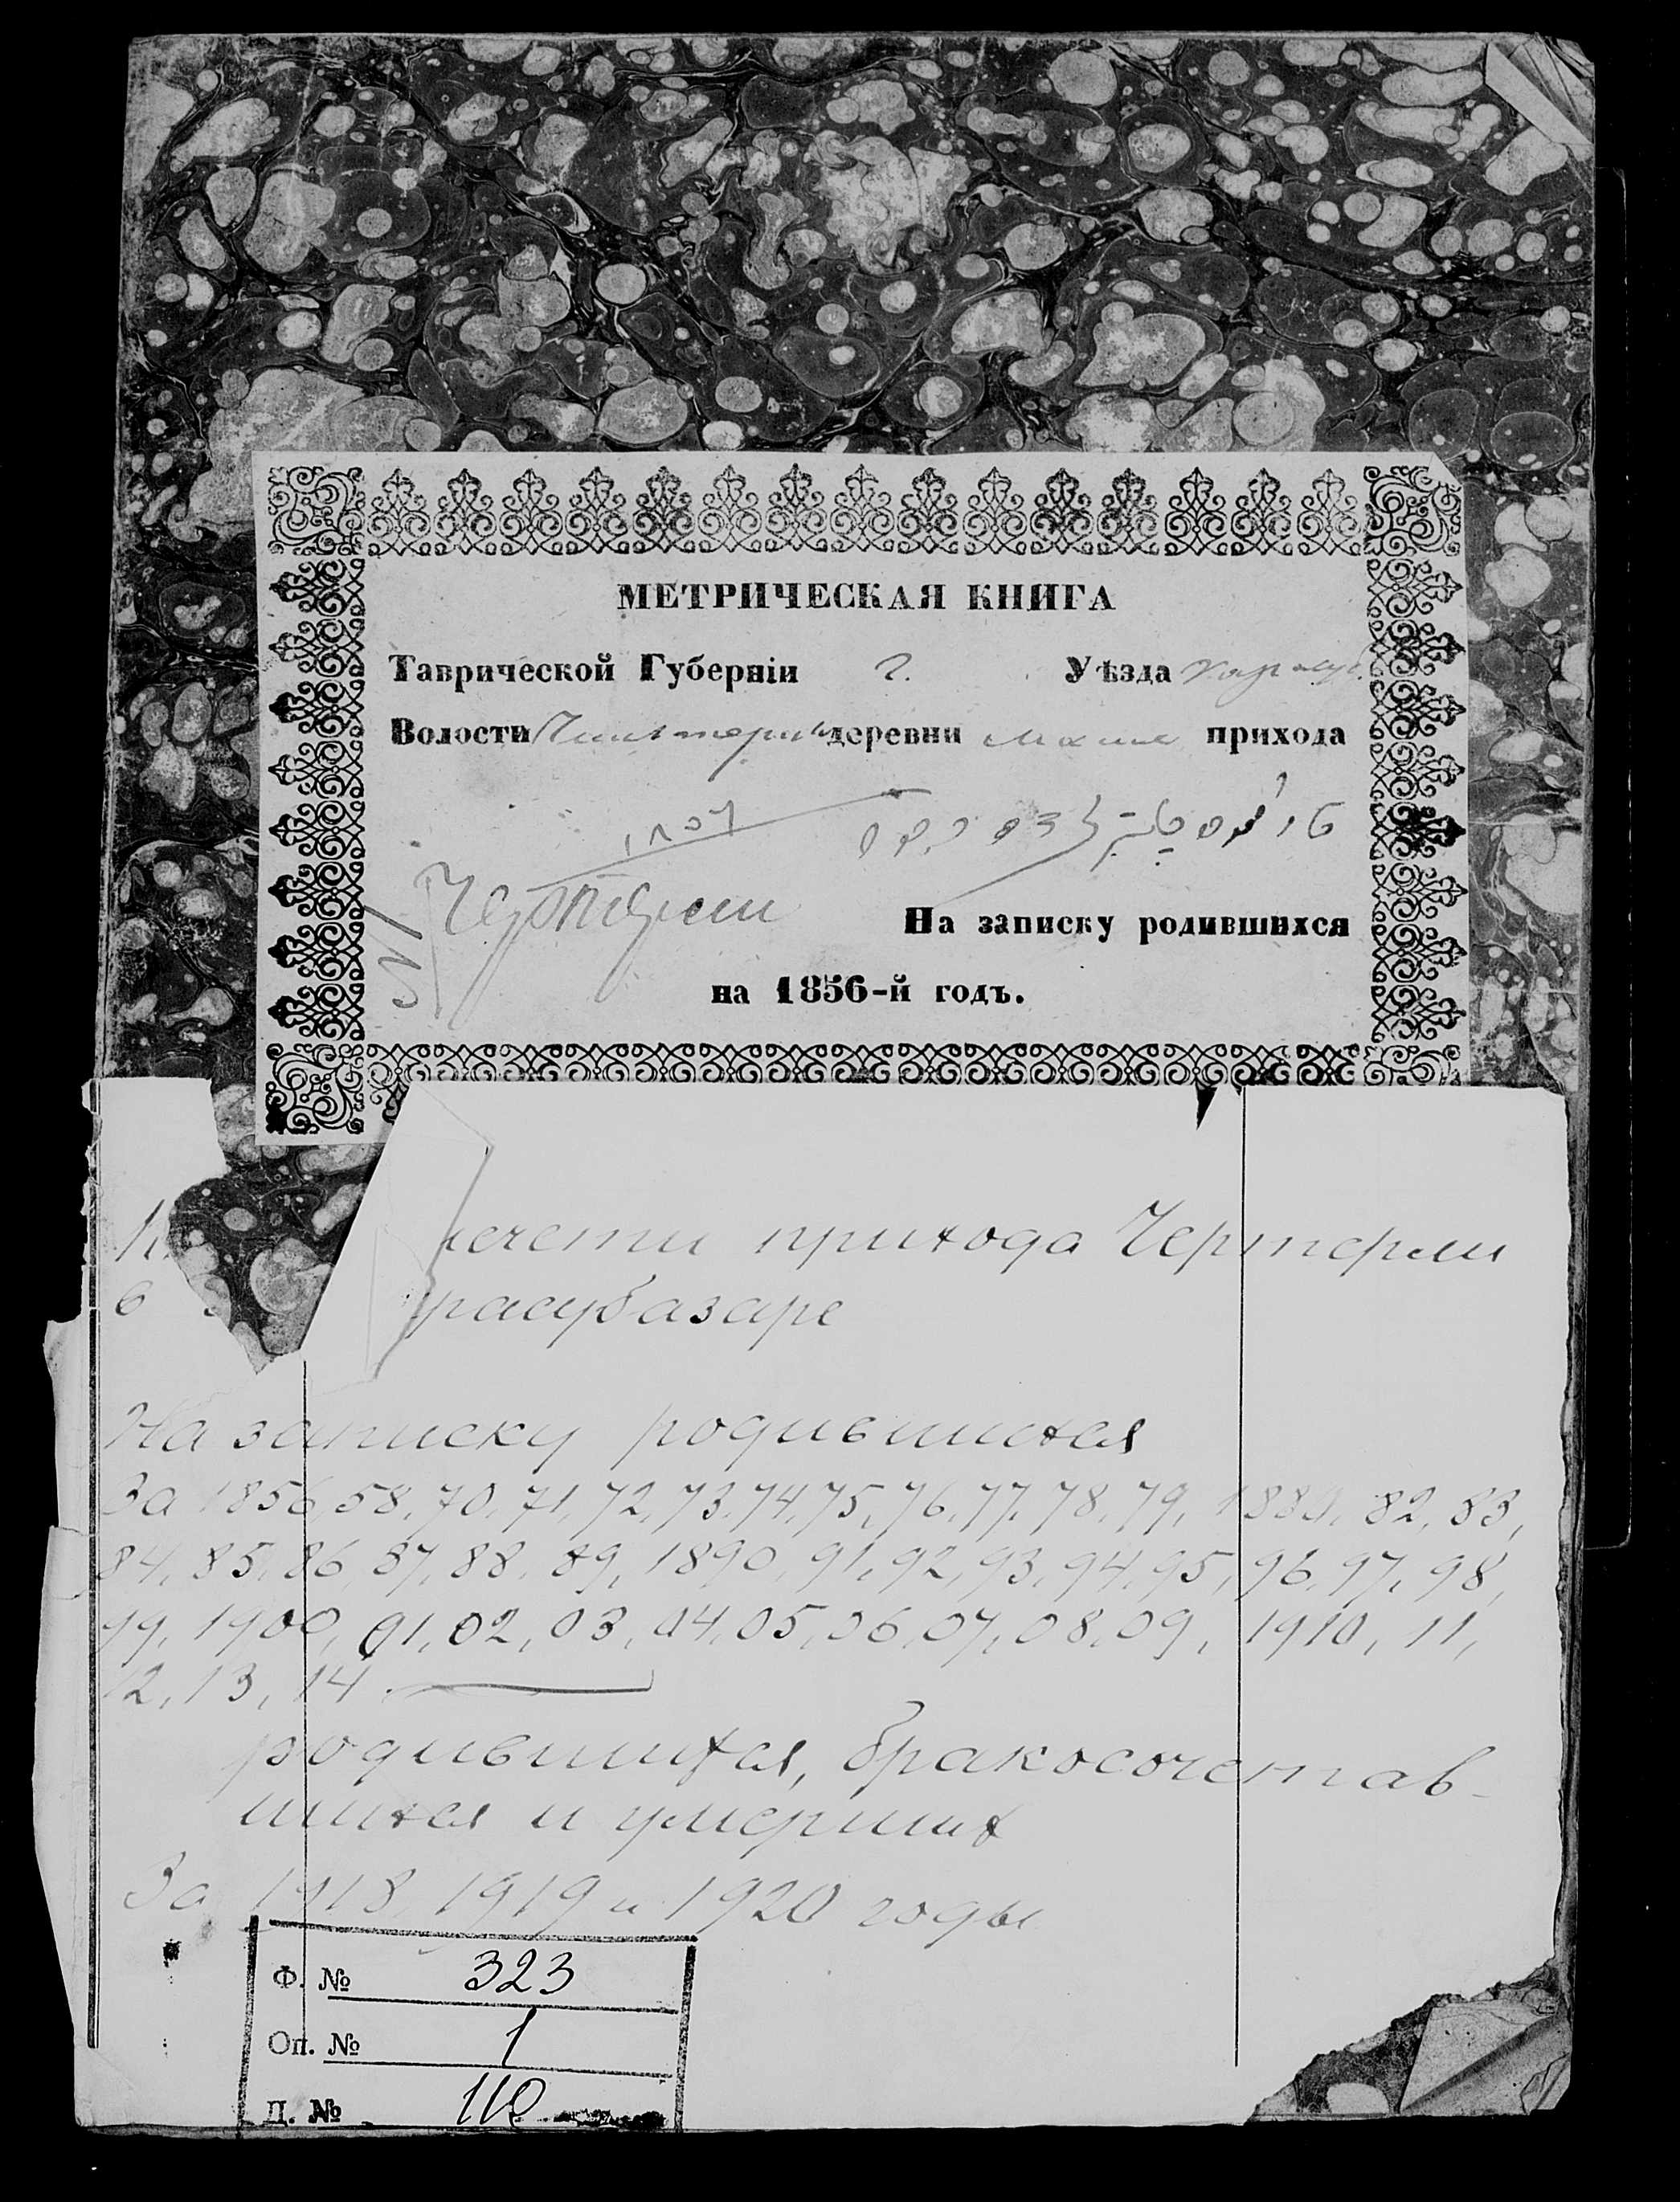 МЕТРИЧЕСКАЯ КНИГА
Таврической Губерніи г. Уѣзда Карасуб.
Волости деревни прихода
١٨٥٦
№ 1 Чертерли
На записку родившихся
на 1856-й годъ.
мечети прихода Чертерли
в расубазаре
На записку родившихся
За 1856, 58, 70, 71, 72, 73, 74, 75, 76, 77, 78, 79, 1880, 82, 83,
84, 85, 86, 87, 88, 89, 1890, 91, 92, 93, 94, 95, 96, 97, 98,
99, 1900, 01, 02, 03, 04, 05, 06, 07, 08, 09, 1910, 11,
12, 13, 14
родившихся, бракосочетав-
шихся и умерших
За 1918, 1919 и 1920 годы
Ф. № 323
Оп. № 1
Д. № 110